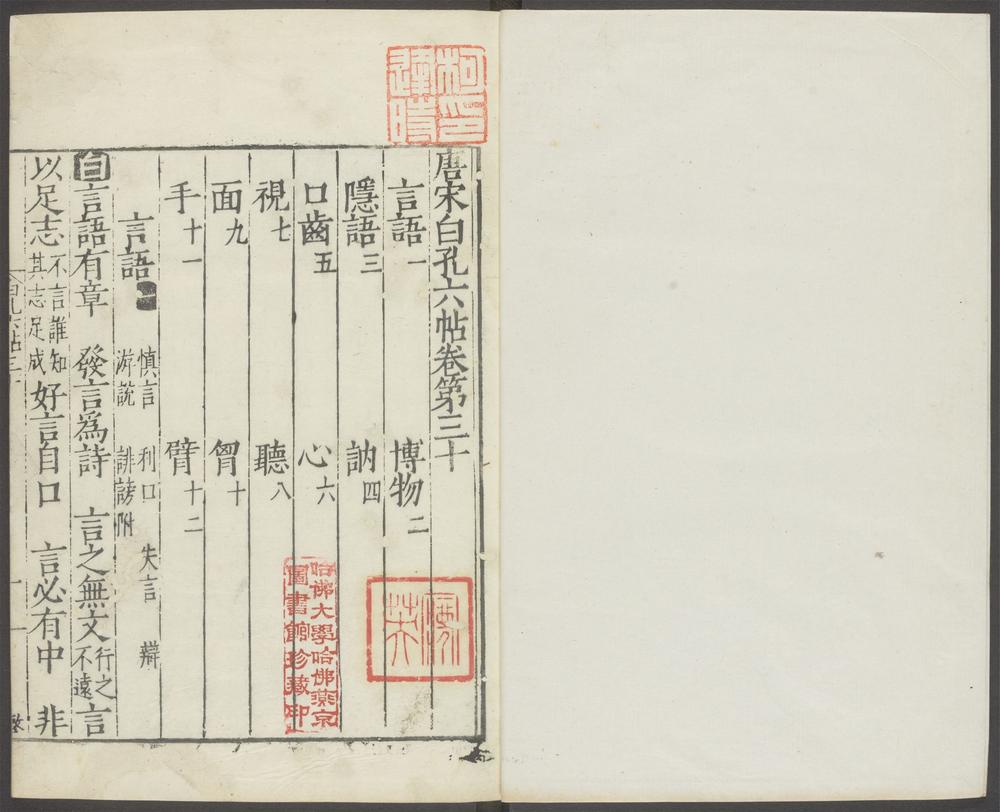 唐宋白孔六帖卷第三十
言語一 博物二
隱語三 訥四
口齒五 心六
視七 聽八
面九 胷十
手十一 臂十二
言語 慎言 利口 失言 辯
游說 誹謗附
白言語有章 發言為詩 言之無文行之不遠言
以足志不言誰知其志足成好言自口 言必有中 非
哈佛大學哈佛燕京
圖書館珍藏印